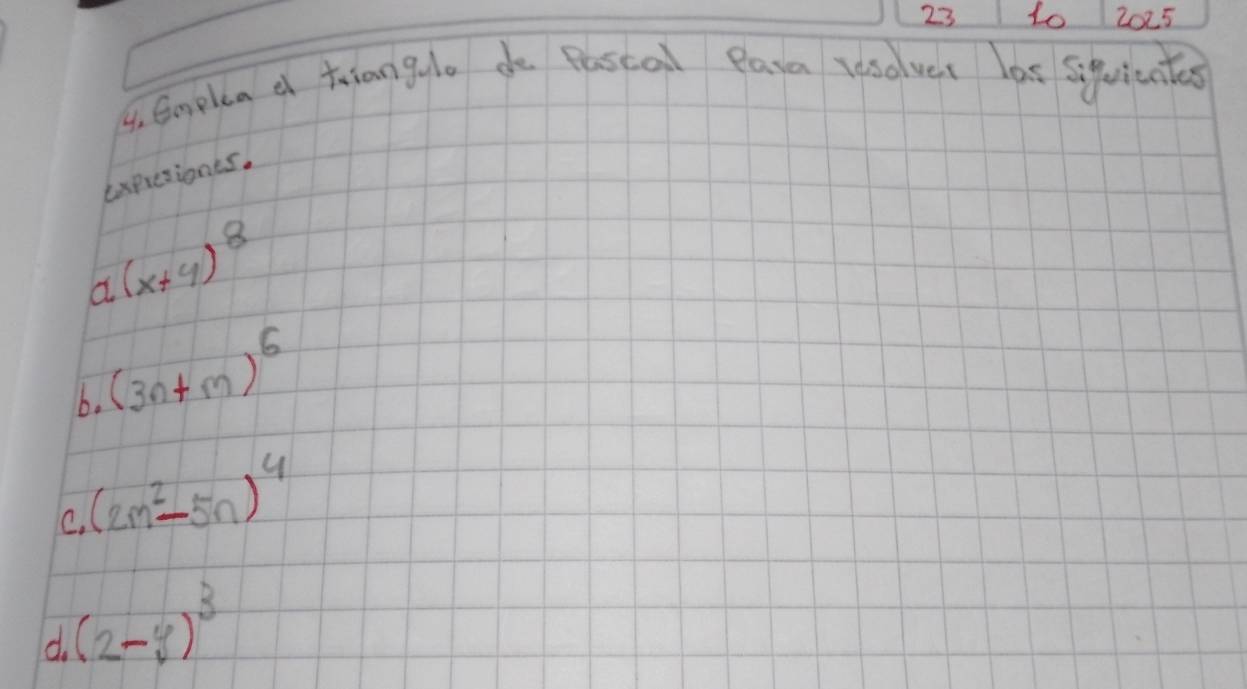 23 10 2025
4. Emplea el triangulo de Pascal Para resolver las siguientes
expresiones.
a. (x+y)⁸
b. (3n+m)⁶
c. (2m²-5n)⁴
d. (2-y)³